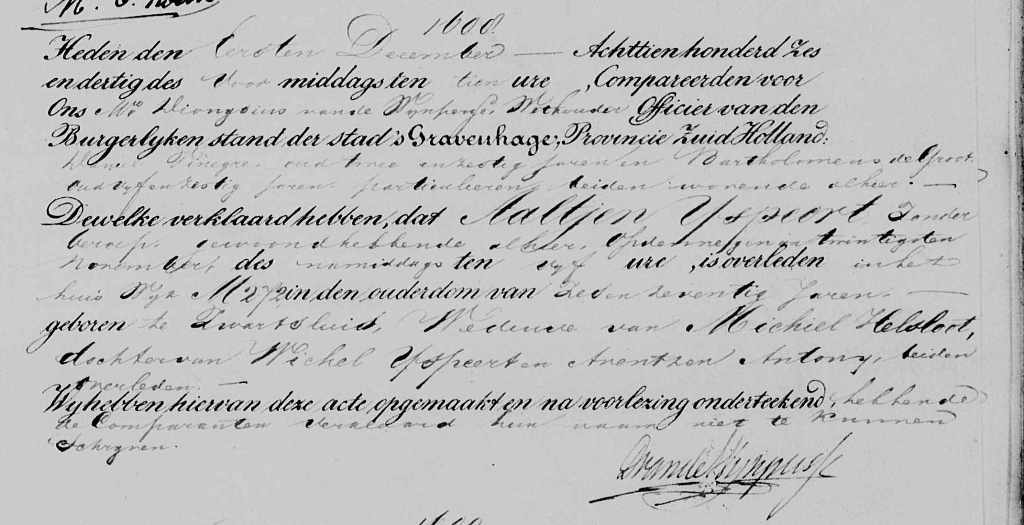 1608.
Heden den Eersten December — Achttien honderd Zes
en dertig des Voor middags ten tien ure, Compareerden voor
Ons Mr. Dionysius vande Wijnpersse Wethouder Officier van den
Burgerlyken stand der stad 's Gravenhage; Provincie Zuid Holland:
oud twee en zestig Jaren en Bartholomeus de Groot
oud vyf en zestig Jaren particulieren, beiden wonende alhier. —
Dewelke verklaard hebben, dat Aaltjen Yspeert Zonder
beroep, gewoond hebbende alhier, op den negen en twintigsten
November, des namiddags ten vyf ure, is overleden in het
huis Wyk M 272 in den ouderdom van Zes en Zeventig Jaren. —
geboren te Zwartsluis, Weduwe van Michiel Helsloot,
dochter van Michel Yspeert en Arentzen Antony, beiden
overleden. —
Wy hebben hiervan deze acte opgemaakt en na voorlezing onderteekend, hebbende
de Comparanten verklaard hun naam niet te kunnen
Schryven.